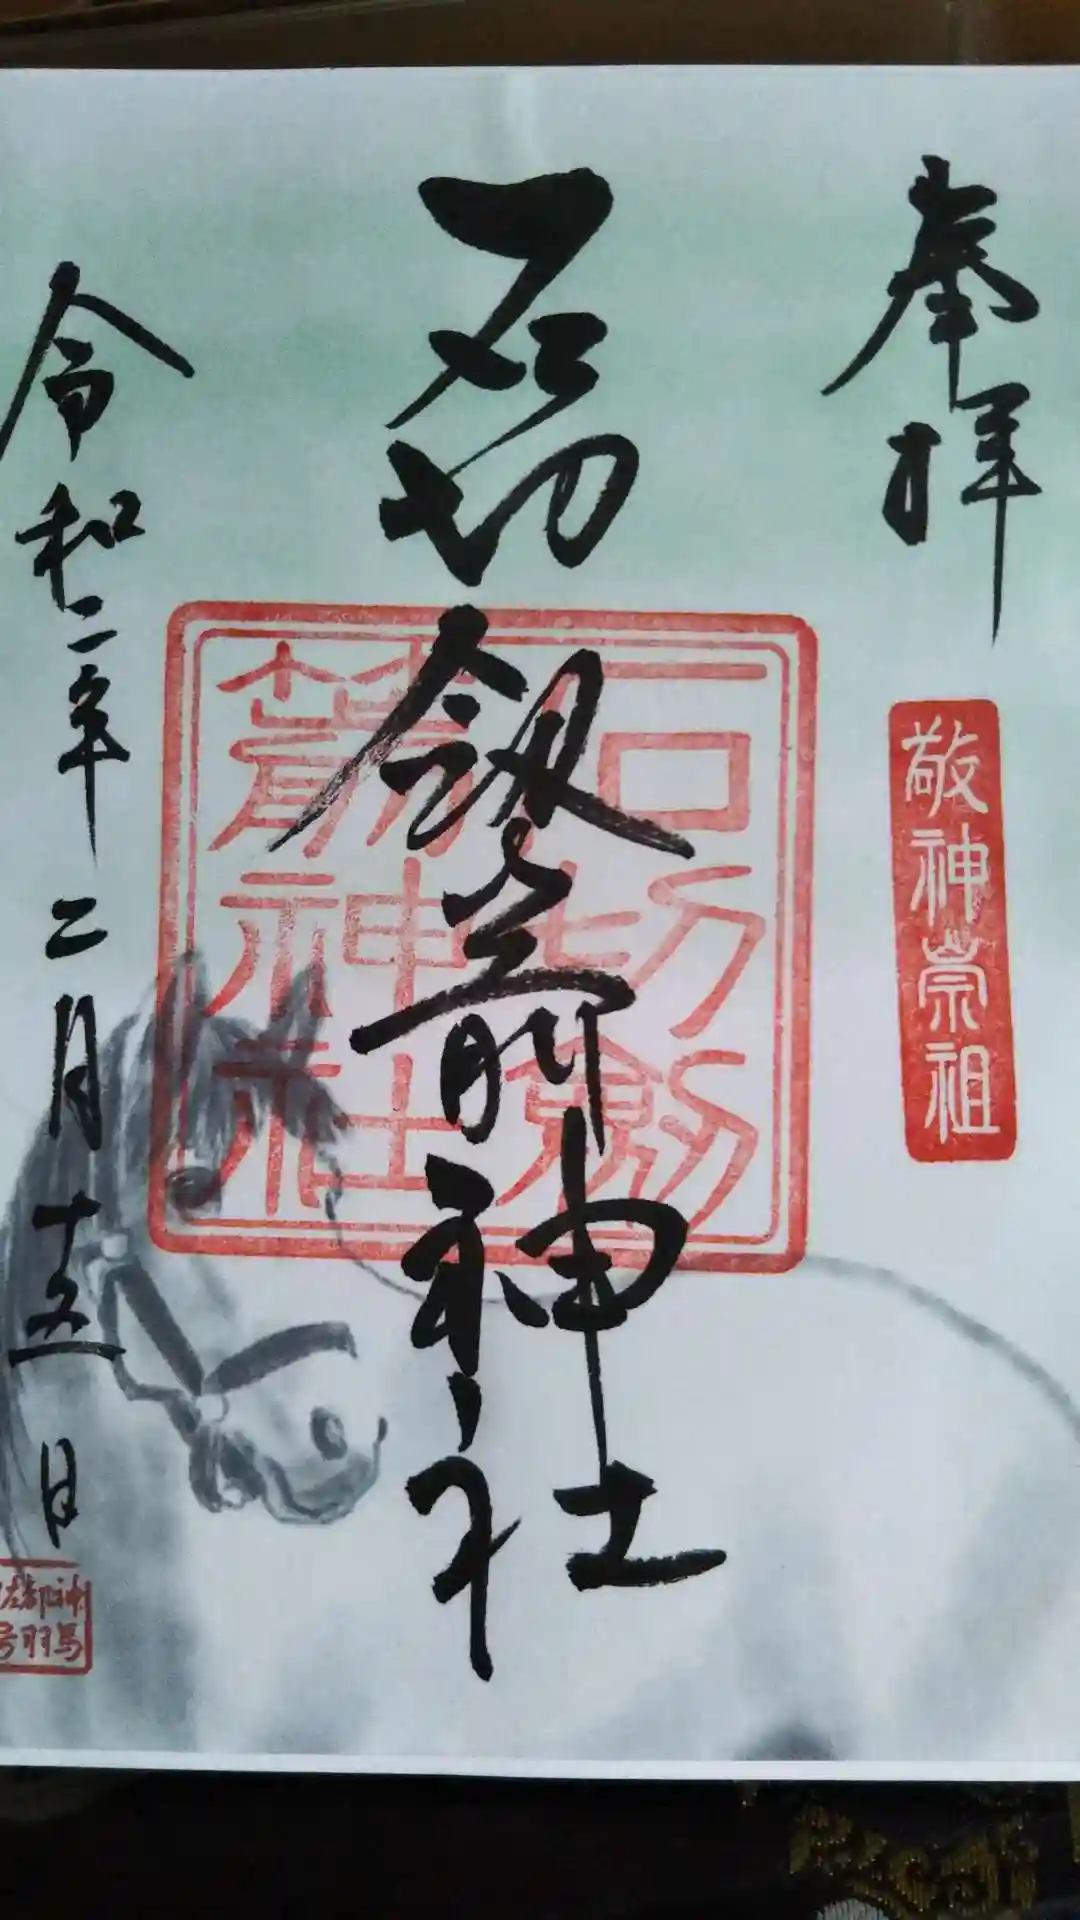 奉拝
敬神崇祖
石切劔箭神社
石切劔
箭神社
令和二年二月十五日
神馬
都羽